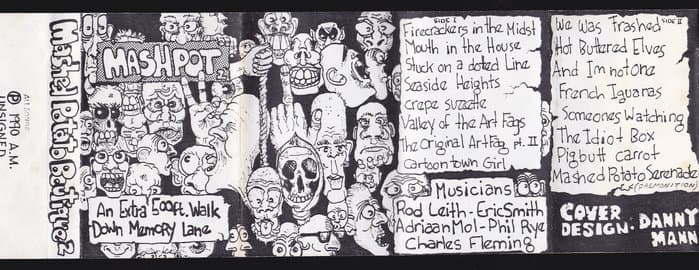 All songs
℗ 1990 A.M.
UNSIGNED
Mashed Potato Boutique vol. 2
MASHPOT
An Extra 500ft. Walk
Down Memory Lane
SIDE I
Firecrackers in the Midst
Mouth in the House
Stuck on a doted Line
Seaside Heights
crepe suzzette
Valley of the Art Fags
The Original Art Fag pt. II
Cartoon town Girl
Musicians
Rod Leith - Eric Smith
Adriaan Mol - Phil Rye
Charles Fleming
SIDE II
We Was Trashed
Hot Buttered Elves
And I'm not one
French Iguanas
Someones Watching
The Idiot Box
Pigbutt carrot
Mashed Potato Serenade
COVER
DESIGN: DANNY
MANN